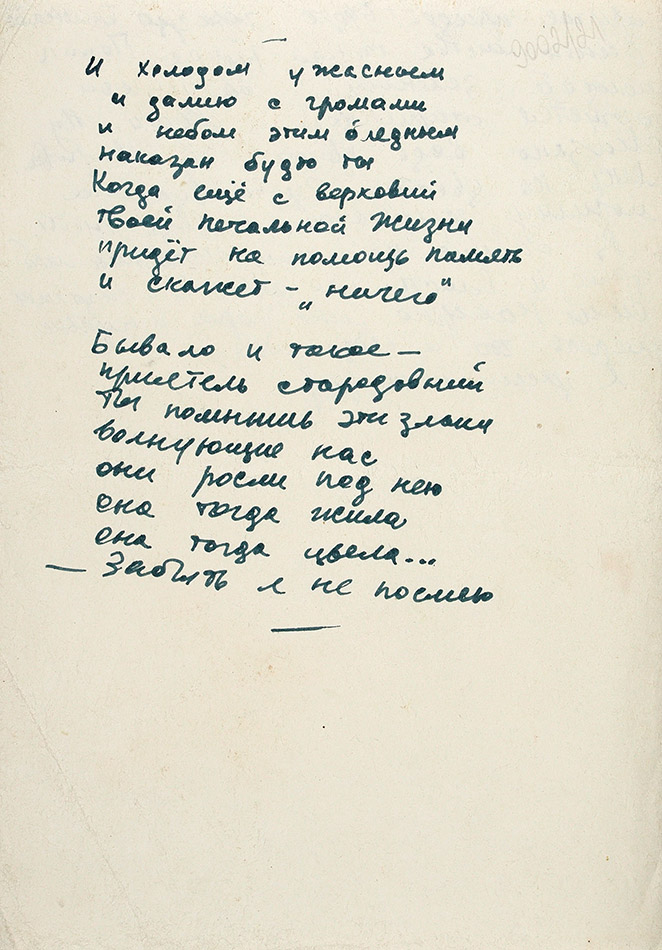 И холодом ужасным
и далию с громами
и небом этим бледным
наказан будю ты
Когда ещё с верховий
твоей печальной жизни
придёт на помощь память
и скажет – „ничего"
Бывало и такое –
приятель стародавний
Ты помнишь эти злаки
волнующие нас
они росли под нею
она тогда жила
она тогда цвела...
– Забыть я не посмею